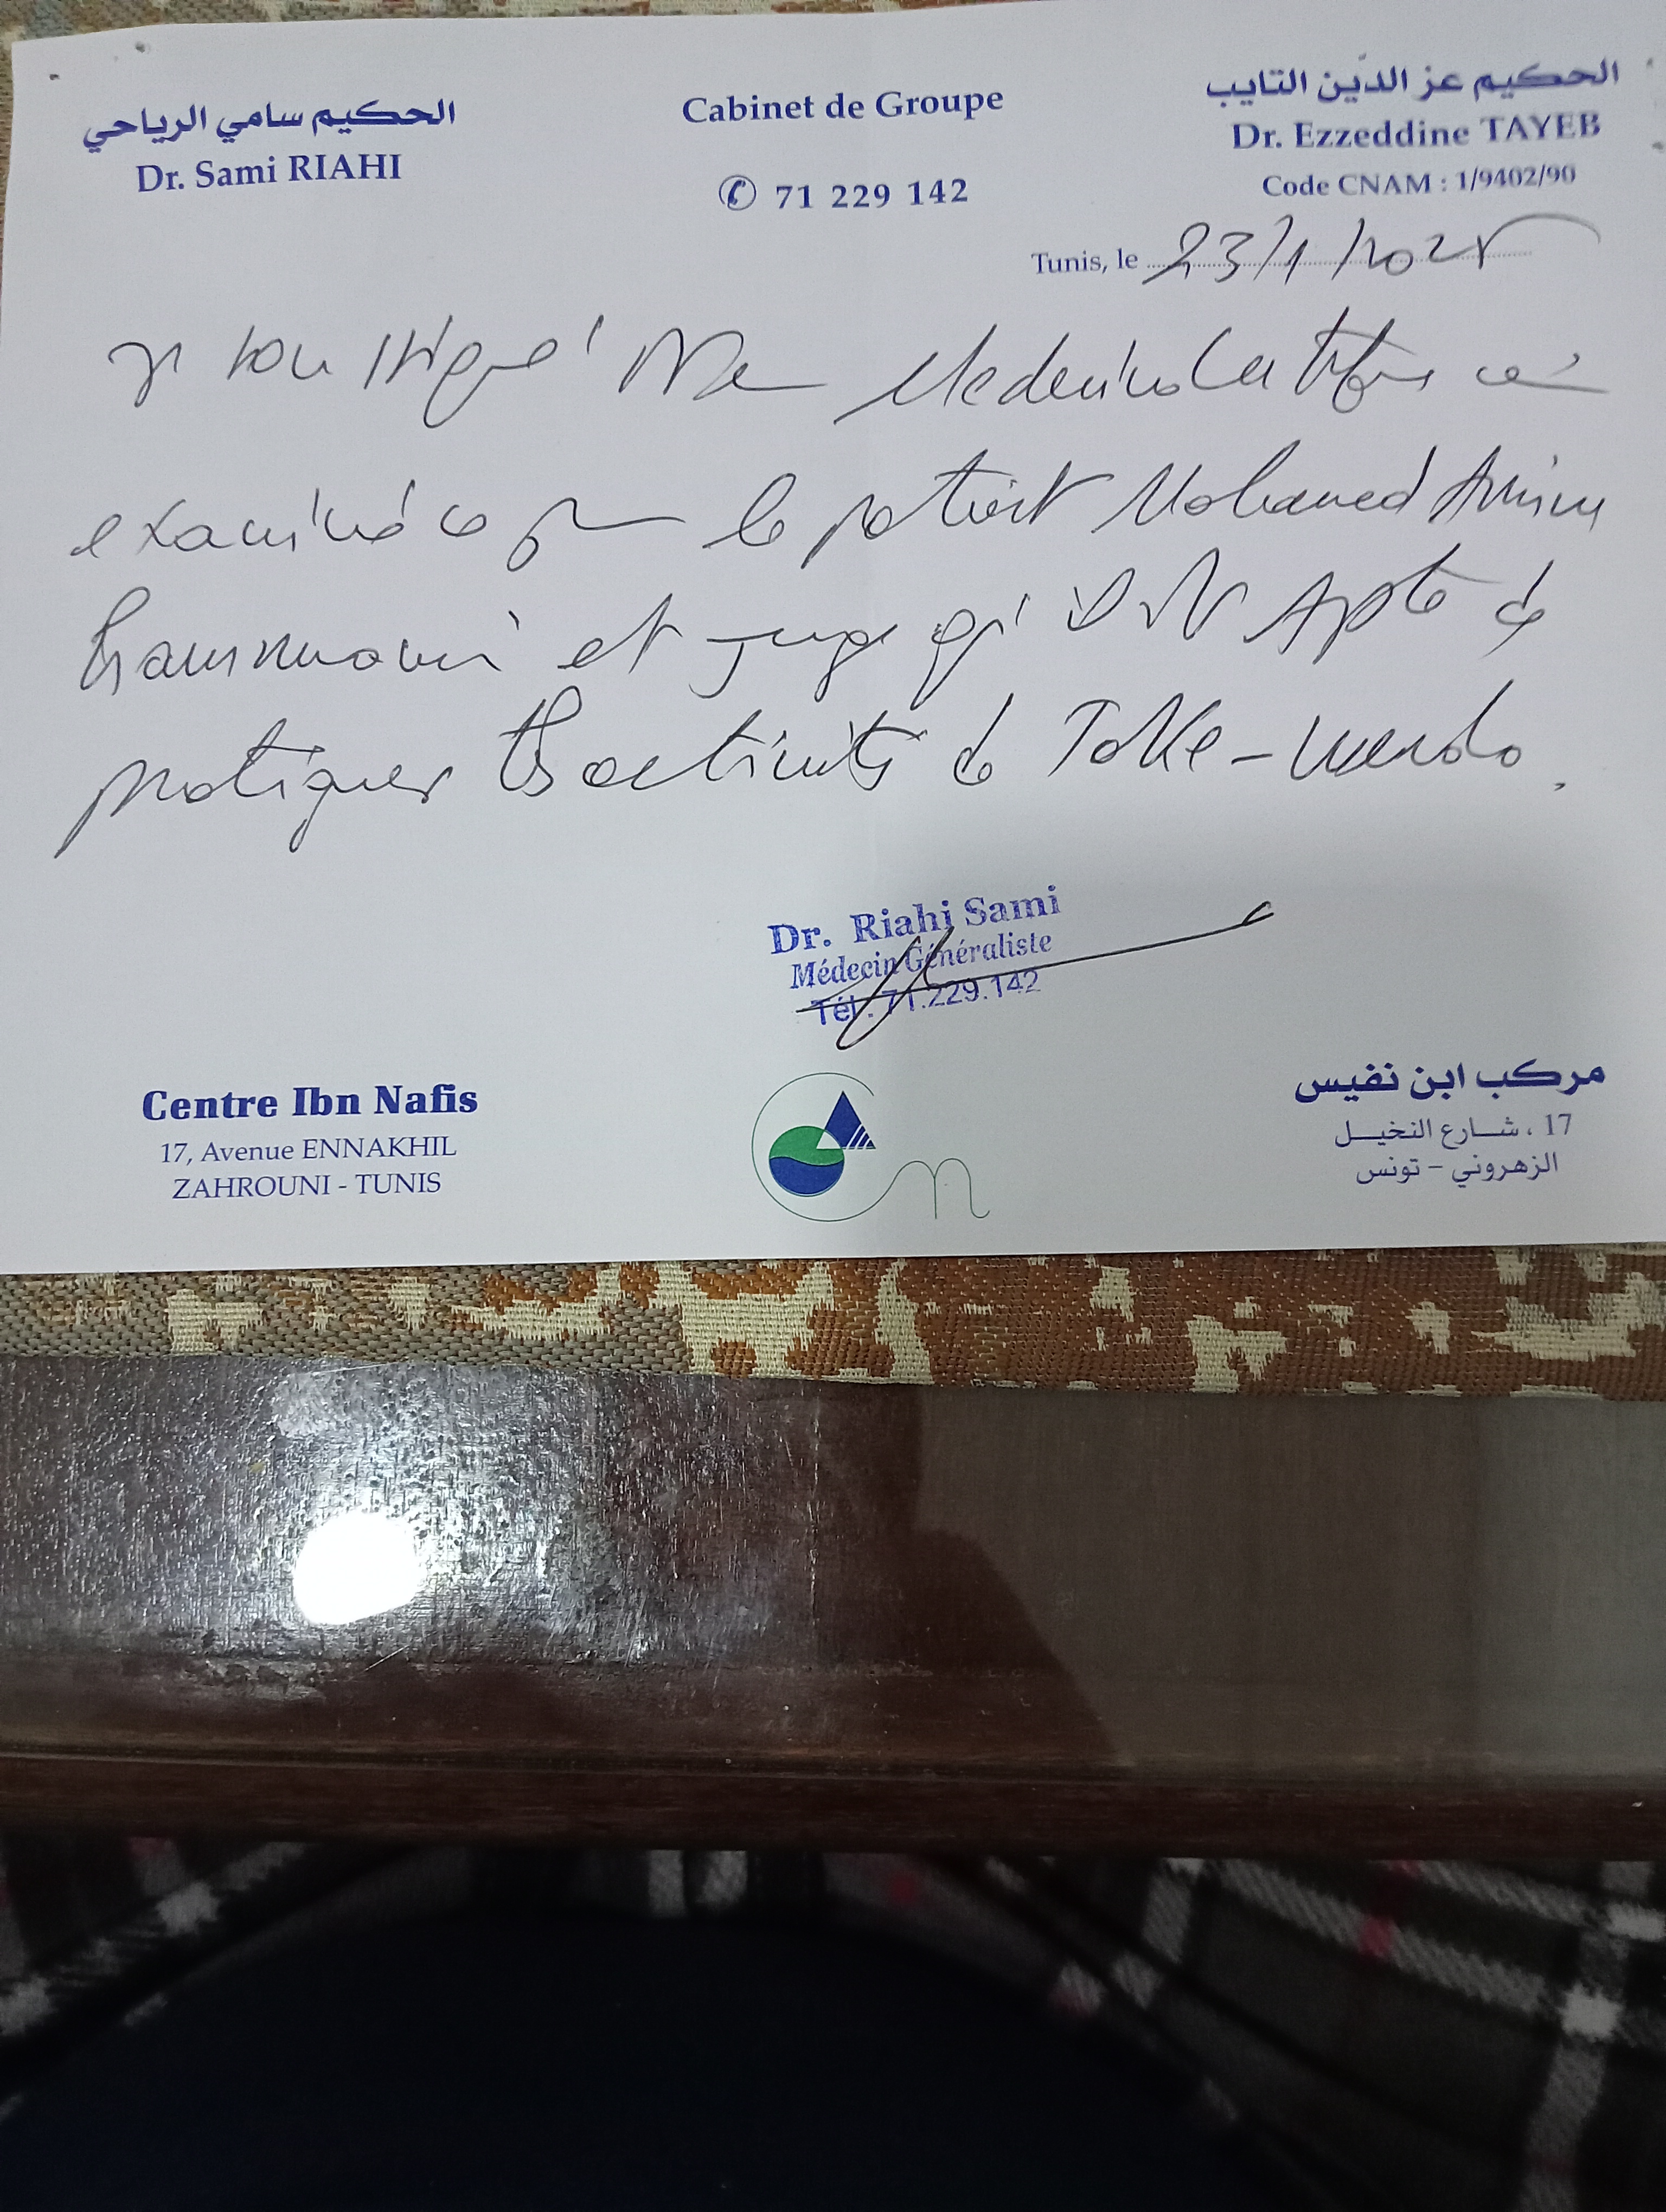 الحكيم سامي الرياحي
Dr. Sami RIAHI
Cabinet de Groupe
✆ 71 229 142
الحكيم عز الدّين التايب
Dr. Ezzeddine TAYEB
Code CNAM : 1/9402/90
Tunis, le 23/1/2025
Je soussigné Dr Medecin certifie avoir
examiné ce jour le patient Mohamed Amine
Hammami et juge qu'il est Apte de
pratiquer les activités de Take-wendo.
Dr. Riahi Sami
Médecin Généraliste
Tél : 71.229.142
Centre Ibn Nafis
17, Avenue ENNAKHIL
ZAHROUNI - TUNIS
مركب ابن نفيس
17 ، شارع النخيل
الزهروني - تونس